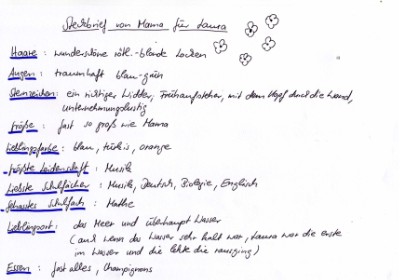 Steckbrief von Mama für Laura
Haare : wunderschöne rötl.-blonde Locken
Augen : traumhaft blau-grün
Sternzeichen : ein richtiger Widder, Frühaufsteher, mit dem Kopf durch die Wand,
unternehmungslustig
Größe : fast so groß wie Mama
Lieblingsfarbe : blau, türkis, orange
größte Leidenschaft : Musik
Liebste Schulfächer : Musik, Deutsch, Biologie, Englisch
Schulfach : Mathe
Lieblingsort : das Meer und überhaupt Wasser
(auch wenn das Wasser sehr kalt war, Laura war die erste
im Wasser und die letzte die rausging)
Essen : fast alles, Champignons